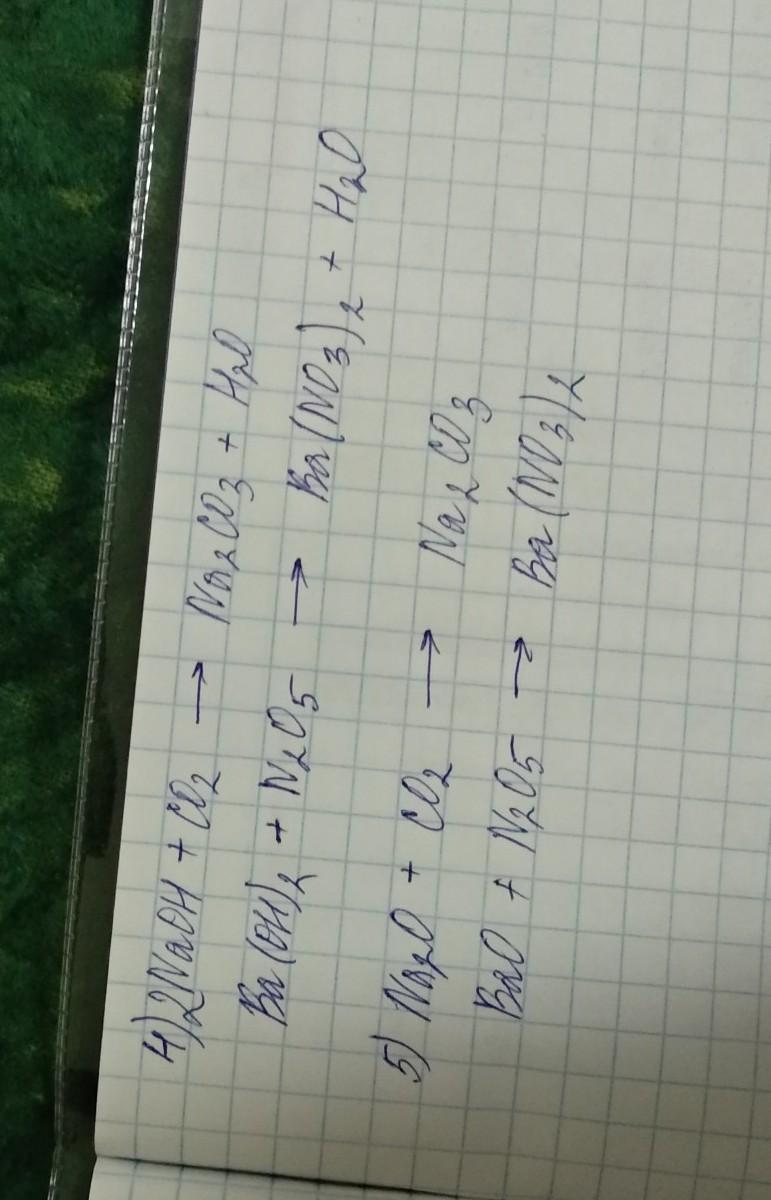 4) 2NaOH + CO2 → Na2CO3 + H2O
Ba(OH)2 + N2O5 → Ba(NO3)2 + H2O
5) Na2O + CO2 → Na2CO3
BaO + N2O5 → Ba(NO3)2